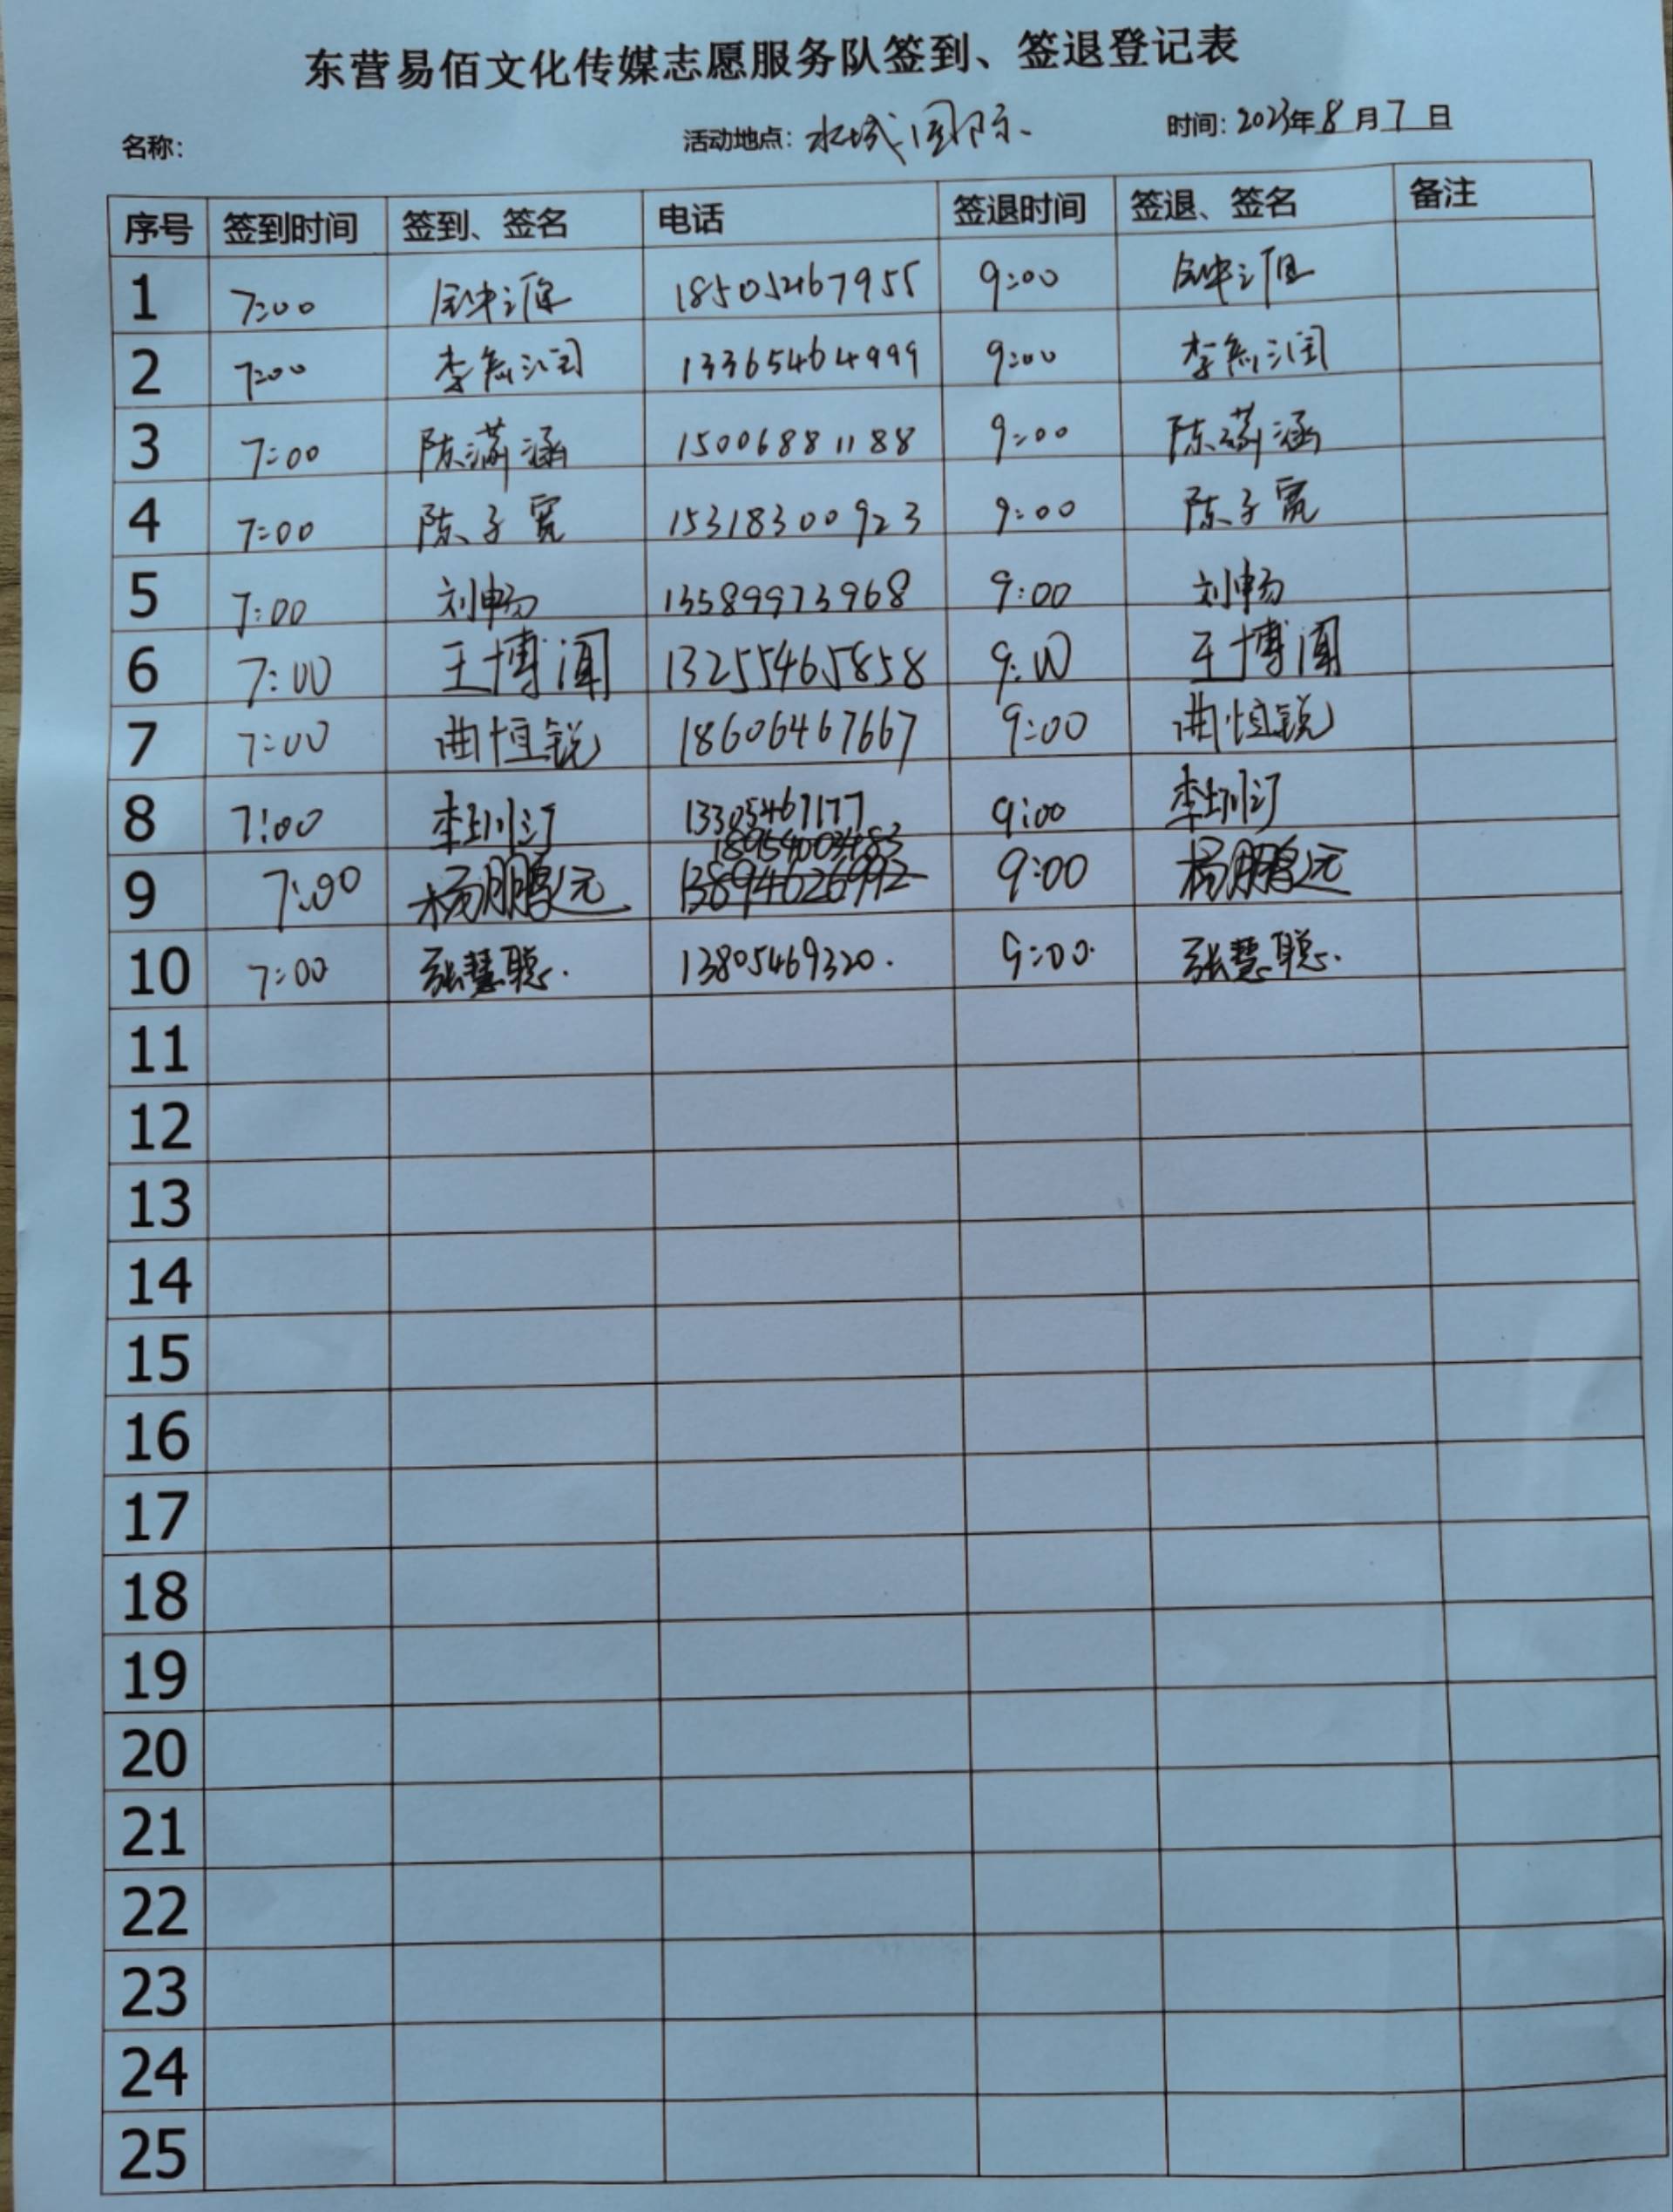 东营易佰文化传媒志愿服务队签到、签退登记表
名称: 活动地点: 水城国际 时间: 2023年8月7日
序号 签到时间 签到、签名 电话 签退时间 签退、签名 备注
1 7:00 18505467955 9:00
2 7:00 13365464999 9:00
3 7:00 陈潇涵 15006881188 9:00 陈潇涵
4 7:00 陈子宽 15318300923 9:00 陈子宽
5 7:00 刘畅 13589973968 9:00 刘畅
6 7:00 王博闻 13255465858 9:00 王博闻
7 7:00 曲恒锐 18606467667 9:00 曲恒锐
8 7:00 李圳汀 13305467177 9:00 李圳汀
18954003483
9 7:00 杨鹏远 9:00 杨鹏远
10 7:00 张慧聪. 13805469320. 9:00. 张慧聪.
11
12
13
14
15
16
17
18
19
20
21
22
23
24
25